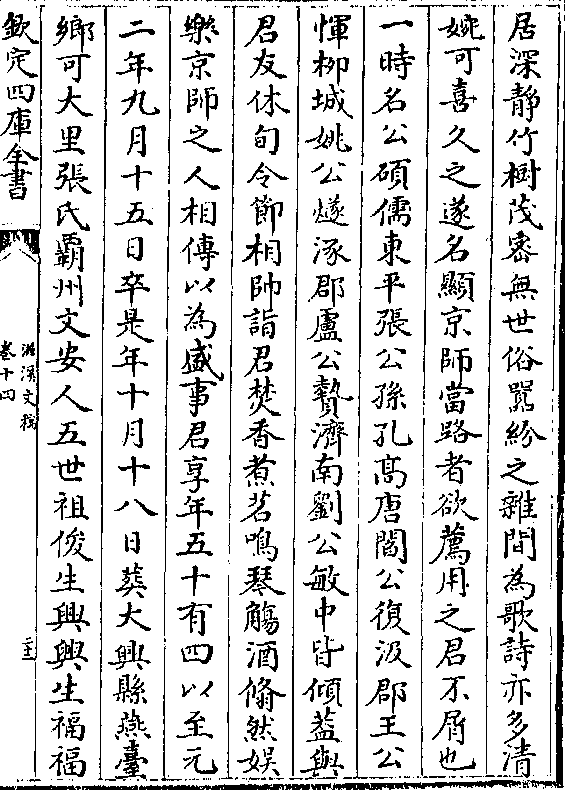 居深靜竹樹茂密無世俗囂紛之雜間為歌詩亦多清
婉可喜久之遂名顯京師當路者欲薦用之君不屑也
一時名公碩儒東平張公孫孔高唐閻公復汲郡王公
惲柳城姚公燧涿郡盧公摯濟南劉公敏中皆傾蓋與
君友休旬令節相帥詣君焚香煮茗鳴琴觴酒翛然娯
樂京師之人相傳以為盛事君享年五十有四以至元
二年九月十五日卒是年十月十八日葬大興縣燕臺
鄉可大里張氏霸州文安人五世祖俊生興興生福福
欽定四庫全書
滋溪文稿
卷十四
二十三